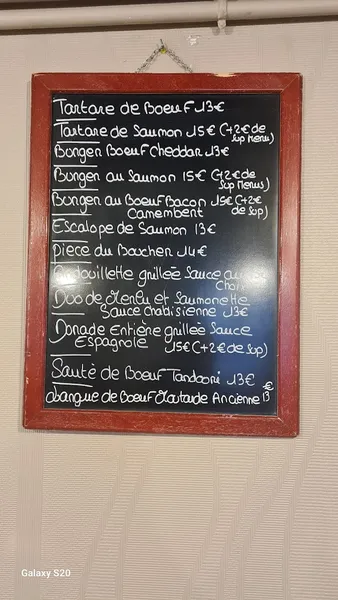 Tartare de Boeuf 13€
Tartare de Saumon 15€ (+2€ de
sup Menus)
Burger Boeuf Cheddar 13€
Burger au Saumon 15€ (+2€ de
sup Menus)
Burger au Boeuf Bacon 15€ (+2€
Camembert de sup)
Escalope de Saumon 13€
Piece du Boucher 14€
Andouillette grillée Sauce au
Choix
Duo de Merlu et Saumonette
Sauce Chablisienne 13€
Dorade Entière grillée Sauce
Espagnole 15€ (+2€ de sup)
Sauté de Boeuf Tandoori 13€
Moutarde Ancienne 13 €
Galaxy S20